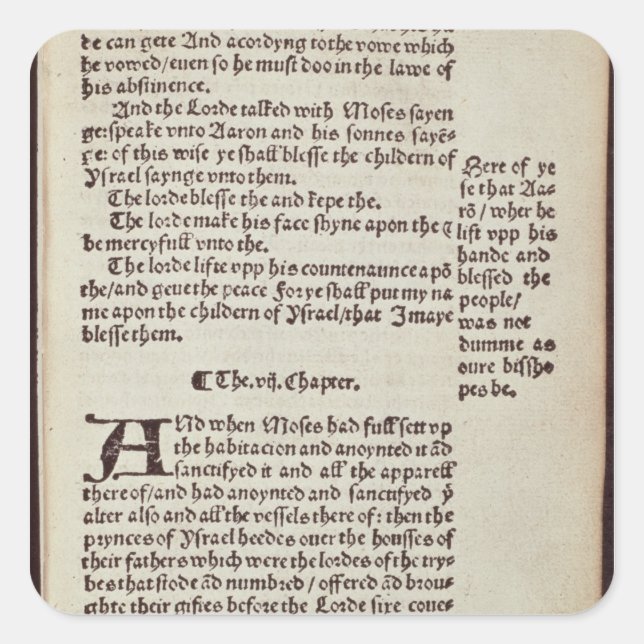 de can gete And acordyng to the vowe which
he vowed/euen so he must doo in the lawe of
his abstinence.
And the Lorde talked with Moses sayen
ge: speake vnto Aaron and his sonnes sayē-
ge: of this wise ye shall blesse the childern of
Ysrael saynge vnto them.
The lorde blesse the and kepe the.
The lorde make his face shyne apon the &
be mercyfull vnto the.
The lorde lifte vpp his countenaunce apō
the/and geue the peace For ye shall put my na
me apon the childern of Ysrael/that I maye
blesse them.
Here of ye
se that Aa-
rō/wher he
lift vpp his
hande and
blessed the
people/
was not
dumme as
oure bissho
pes be.
¶ The .vij. Chapter.
ANd when Moses had full sett vp
the habitacion and anoynted it ād
sanctifyed it and all the apparell
there of/and had anoynted and sanctifyed yͤ
alter also and all the vessels there of: then the
prynces of Ysrael heedes ouer the housses of
their fathers which were the lordes of the try-
bes that stode ād numbred/offered ād brou-
ghte their giftes before the Lorde sixe coue-